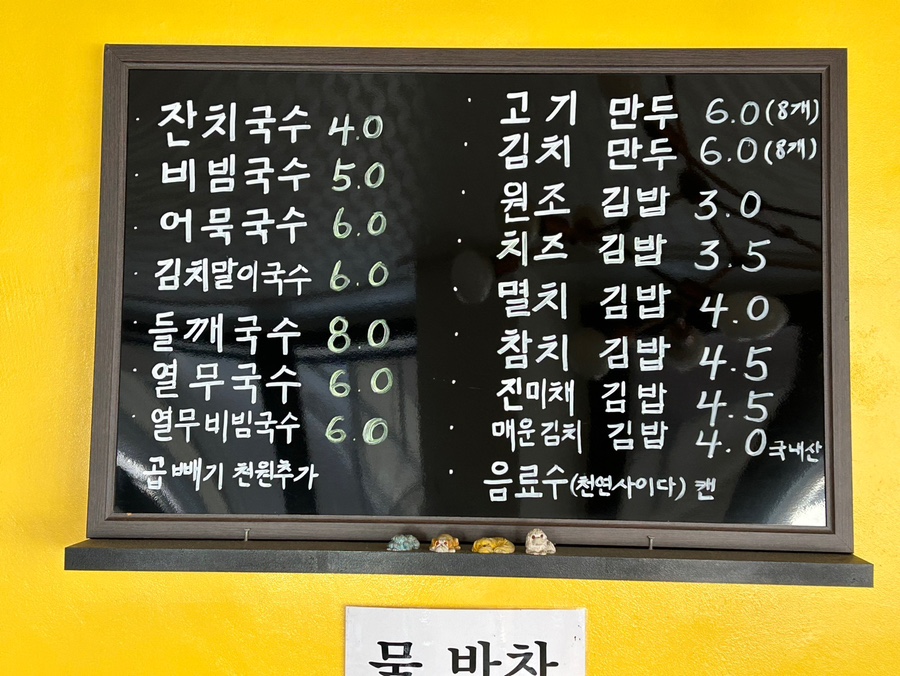 · 잔치국수 4.0
· 비빔국수 5.0
· 어묵국수 6.0
· 김치말이국수 6.0
· 들깨국수 8.0
· 열무국수 6.0
· 열무비빔국수 6.0
곱빼기 천원추가
· 고기 만두 6.0 (8개)
· 김치 만두 6.0 (8개)
· 원조 김밥 3.0
· 치즈 김밥 3.5
· 멸치 김밥 4.0
· 참치 김밥 4.5
· 진미채 김밥 4.5
· 매운김치 김밥 4.0 국내산
· 음료수(천연사이다) 캔
물 반찬